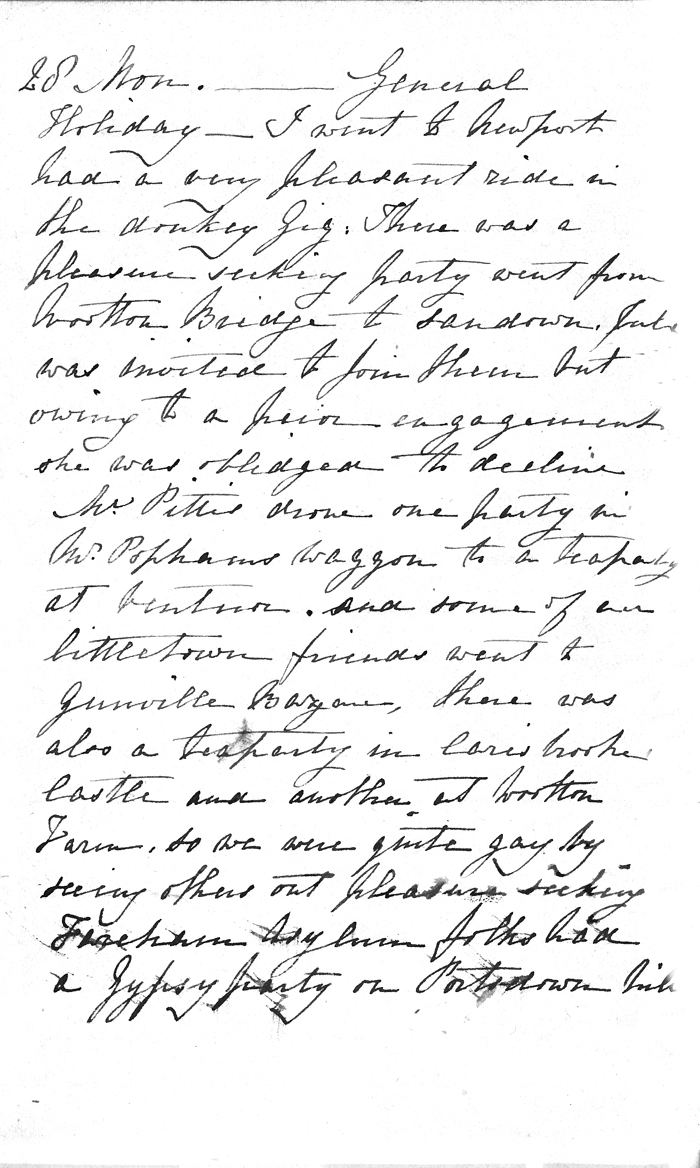 28 Mon. ——— General
Holiday — I went to Newport
had a very pleasant ride in
the donkey Gig. There was a
pleasure seeking party went from
Wootton Bridge to Sandown. Jule
was invited to join them but
owing to a prior engagement
she was oblidged to decline
Mr. Pittis drove one party in
Mr. Pophams waggon to a teaparty
at Ventnor. and some of our
Littletown friends went to
Gunville Bazaar, there was
also a teaparty in Carisbrooke
Castle and another at Wootton
Farm. so we were quite gay by
seeing others out pleasure seeking
Fareham Asylum folks had
a Gypsy party on Portsdown hill